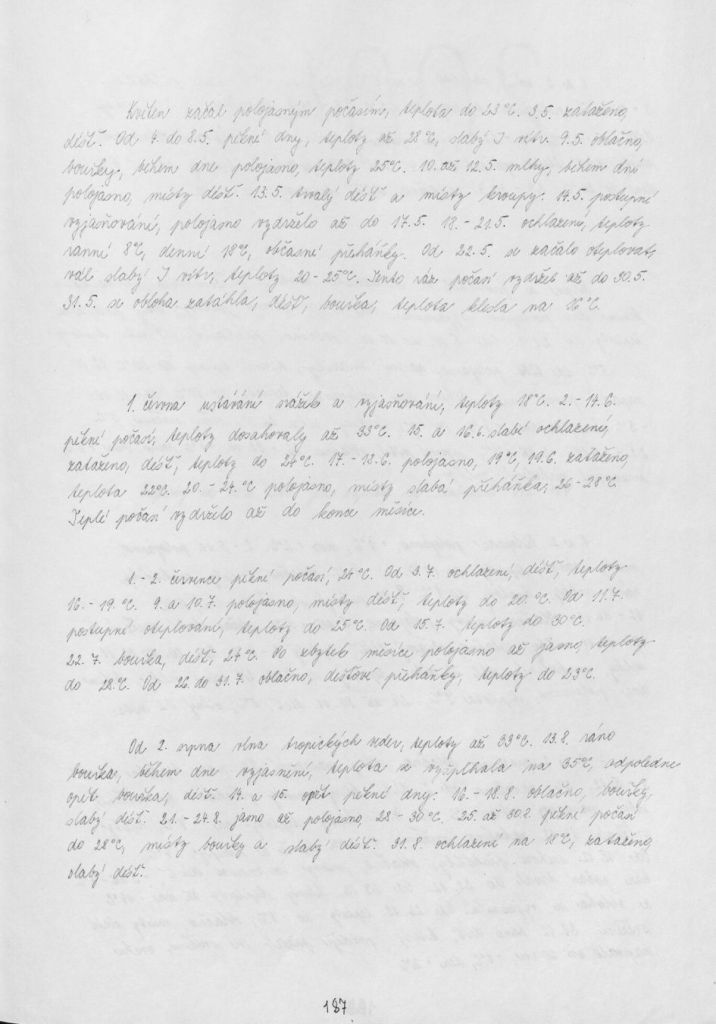 Květen začal polojasným počasím, teplota do 23°C. 3.5. zataženo,
déšť. Od 4. do 8.5. pěkné dny, teploty až 28°C, slabý J vítr. 9.5. oblačno,
bouřky, během dne polojasno, teploty 25°C. 10. až 12.5. mlhy, během dní
polojasno, místy déšť. 13.5. trvalý déšť a místy kroupy. 14.5. postupné
vyjasňování, polojasno vydrželo až do 17.5. 18.-21.5. ochlazení, teploty
ranní 8°C, denní 18°C, občasné přeháňky. Od 22.5. se začalo oteplovat,
vál slabý J vítr, teploty 20-25°C. Tento ráz počasí vydržel až do 30.5.
31.5. se obloha zatáhla, déšť, bouřka, teplota klesla na 16°C.
1. června ustávání srážek a vyjasňování, teploty 18°C. 2.-14.6.
pěkné počasí, teploty dosahovaly až 33°C. 15. a 16.6. slabé ochlazení,
zataženo, déšť, teploty do 24°C. 17.-18.6. polojasno, 19°C, 19.6. zataženo,
teplota 22°C. 20.-24.°C polojasno, místy slabá přeháňka, 26-28°C.
Teplé počasí vydrželo až do konce měsíce.
1.-2. července pěkné počasí, 24°C. Od 3.7. ochlazení, déšť, teploty
16.-19.°C. 9. a 10.7. polojasno, místy déšť, teploty do 20.°C. Od 11.7.
postupné oteplování, teploty do 25°C. Od 15.7. teploty do 30°C.
22.7. bouřka, déšť, 24°C. Po zbytek měsíce polojasno až jasno, teploty
do 28.°C. Od 26. do 31.7. oblačno, dešťové přeháňky, teploty do 23°C.
Od 2. srpna vlna tropických veder, teploty až 33°C. 13.8. ráno
bouřka, během dne vyjasnění, teplota se vyšplhala na 35°C, odpoledne
opět bouřka, déšť. 14. a 15. opět pěkné dny. 16.-18.8. oblačno, bouřky,
slabý déšť. 21.-24.8. jasno až polojasno, 28-30°C. 25. až 30.8. pěkné počasí
do 28°C, místy bouřky a slabý déšť. 31.8. ochlazení na 18°C, zataženo,
slabý déšť.
187